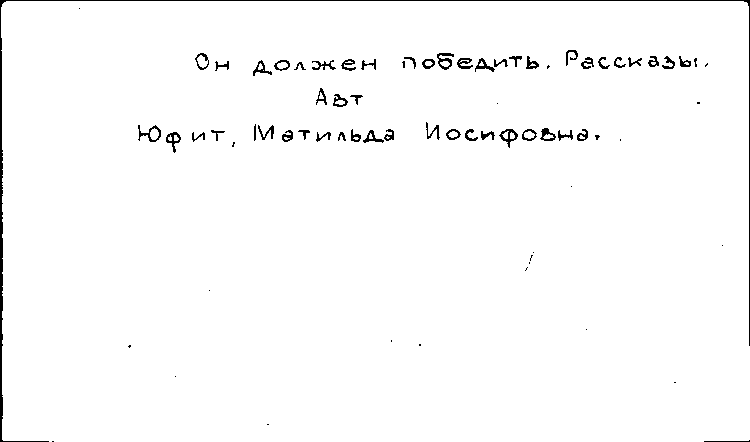 Он должен победить. Рассказы.
Авт
Юфит, Матильда Иосифовна.